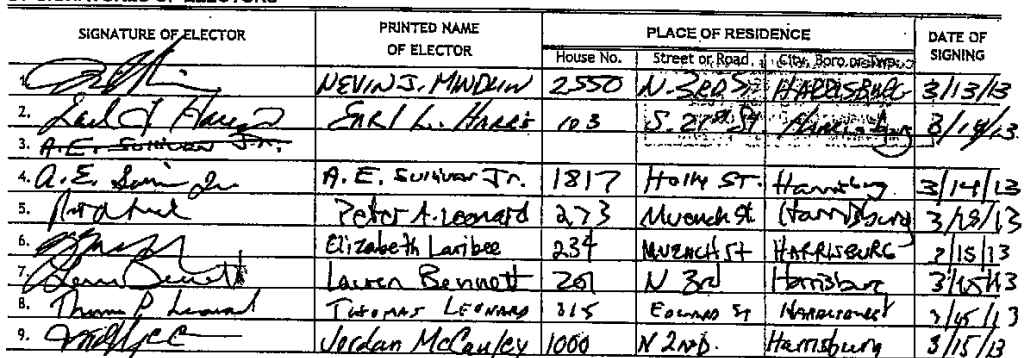 SIGNATURE OF ELECTOR PRINTED NAME OF ELECTOR PLACE OF RESIDENCE DATE OF SIGNING
House No. Street or Road City, Boro or Twp.
1. NEVIN J. MINDLIN 2550 N. 3RD ST HARRISBURG 3/13/13
2. Earl L. Harris EARL L. HARRIS 103 S. 27th St 3/14/13
3. A.E. Sullivan Jr.
4. A.E. Jr. A.E. Sullivan Jr. 1817 Holly ST. Harrisburg 3/14/13
5. Peter A. Leonard 273 Muench St. Harrisburg
6. Elizabeth Laribee 234 MUENCH ST HARRISBURG
7. Lauren Bennett Lauren Bennett 201 N 3rd Harrisburg 3/15/13
8. Thomas P Leonard THOMAS LEONARD 315 HARRISBURG 3/15/13
9. Jordan McCauley 1000 N 2ND. Harrisburg 3/15/13